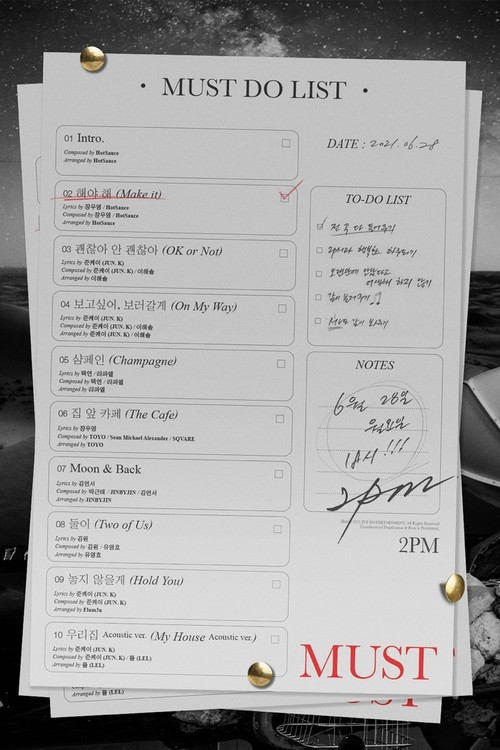 · MUST DO LIST ·
01 Intro.
Composed by HotSauce
Arranged by HotSauce
02 해야 해 (Make it)
Lyrics by 장우영 / HotSauce
Composed by 장우영 / HotSauce
Arranged by HotSauce
03 괜찮아 안 괜찮아 (OK or Not)
Lyrics by 준케이 (JUN. K)
Composed by 준케이 (JUN. K) / 이해솔
Arranged by 이해솔
04 보고싶어, 보러갈게 (On My Way)
Lyrics by 준케이 (JUN. K)
Composed by 준케이 (JUN. K) / 이해솔
Arranged by 준케이 (JUN. K) / 이해솔
05 샴페인 (Champagne)
Lyrics by 택연 / 라파엘
Composed by 택연 / 라파엘
Arranged by 라파엘
06 집 앞 카페 (The Cafe)
Lyrics by 장우영
Composed by TOYO / Sean Michael Alexander / SQVARE
Arranged by TOYO
07 Moon & Back
Lyrics by 김연서
Composed by 박근태 / JINBYJIN / 김연서
Arranged by JINBYJIN
08 둘이 (Two of Us)
Lyrics by 김원
Composed by 김원 / 유영호
Arranged by 유영호
09 놓지 않을게 (Hold You)
Lyrics by 준케이 (JUN. K)
Composed by 준케이 (JUN. K)
Arranged by Elum3n
10 우리집 Acoustic ver. (My House Acoustic ver.)
Lyrics by 준케이 (JUN. K)
Composed by 준케이 (JUN. K) / 뜰 (LEL)
Arranged by 뜰 (LEL)
DATE : 2021.06.28
TO-DO LIST
NOTES
6월 28일
월요일
18시 !!!
2pm
2PM
MUST